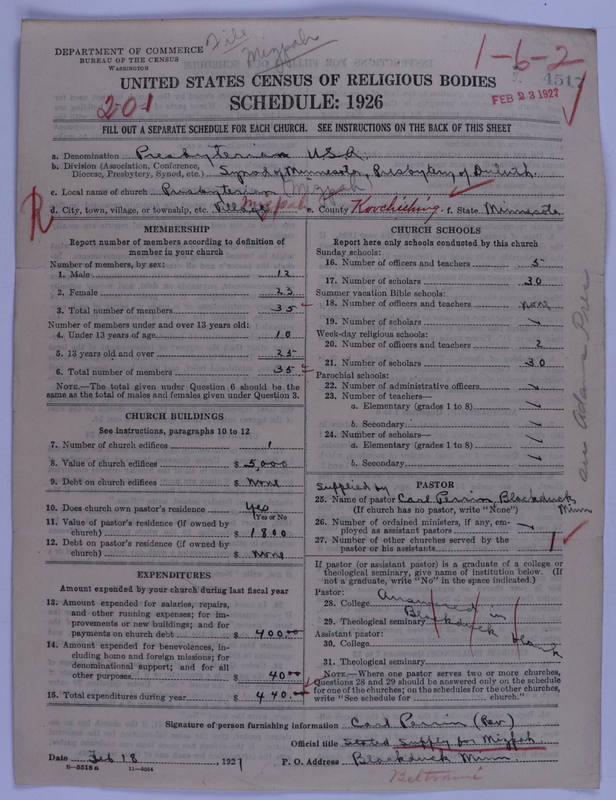 File Mizpah
1-6-2
DEPARTMENT OF COMMERCE
BUREAU OF THE CENSUS
WASHINGTON
UNITED STATES CENSUS OF RELIGIOUS BODIES
4517
FEB 23 1927
201
SCHEDULE: 1926
FILL OUT A SEPARATE SCHEDULE FOR EACH CHURCH. SEE INSTRUCTIONS ON THE BACK OF THIS SHEET
a. Denomination Presbyterian USA
b. Division (Association, Conference, Diocese, Presbytery, Synod, etc.) Synod of Minnesota, Presbytery of Duluth
c. Local name of church Presbyterian (Mizpah)
R d. City, town, village, or township, etc. Village Mizpah e. County Koochiching f. State Minnesota
MEMBERSHIP
Report number of members according to definition of
member in your church
Number of members, by sex:
1. Male 12
2. Female 23
3. Total number of members 35
Number of members under and over 13 years old:
4. Under 13 years of age 10
5. 13 years old and over 25
6. Total number of members 35
NOTE.—The total given under Question 6 should be the
same as the total of males and females given under Question 3.
CHURCH BUILDINGS
See instructions, paragraphs 10 to 12
7. Number of church edifices 1
8. Value of church edifices $ 5,000
9. Debt on church edifices $ None
10. Does church own pastor's residence Yes
(Yes or No)
11. Value of pastor's residence (if owned by
church) $ 1800
12. Debt on pastor's residence (if owned by
church) $ None
EXPENDITURES
Amount expended by your church during last fiscal year
13. Amount expended for salaries, repairs,
and other running expenses; for im-
provements or new buildings; and for
payments on church debt $ 400.00
14. Amount expended for benevolences, in-
cluding home and foreign missions; for
denominational support; and for all
other purposes $ 40.00
15. Total expenditures during year $ 440.00
CHURCH SCHOOLS
Report here only schools conducted by this church
Sunday schools:
16. Number of officers and teachers 5
17. Number of scholars 30
Summer vacation Bible schools:
18. Number of officers and teachers none
19. Number of scholars
Week-day religious schools:
20. Number of officers and teachers 2
21. Number of scholars 30
Parochial schools:
22. Number of administrative officers
23. Number of teachers—
a. Elementary (grades 1 to 8)
b. Secondary
24. Number of scholars—
a. Elementary (grades 1 to 8)
b. Secondary
PASTOR
Supplied by
25. Name of pastor Carl Perrin Blackduck
(If church has no pastor, write "None") Minn
26. Number of ordained ministers, if any, em-
ployed as assistant pastors
27. Number of other churches served by the
pastor or his assistants 1
If pastor (or assistant pastor) is a graduate of a college or
theological seminary, give name of institution below. (If
not a graduate, write "No" in the space indicated.)
Pastor:
28. College Answered in
29. Theological seminary Blackduck
Assistant pastor: Blank
30. College
31. Theological seminary
NOTE.—Where one pastor serves two or more churches,
Questions 28 and 29 should be answered only on the schedule
for one of the churches; on the schedules for the other churches,
write "See schedule for church."
Signature of person furnishing information Carl Perrin (Rev)
Official title Stated Supply for Mizpah
Date Feb 18, 1927 P. O. Address Blackduck Minn.
8-5518a 11-9064
Beltrami